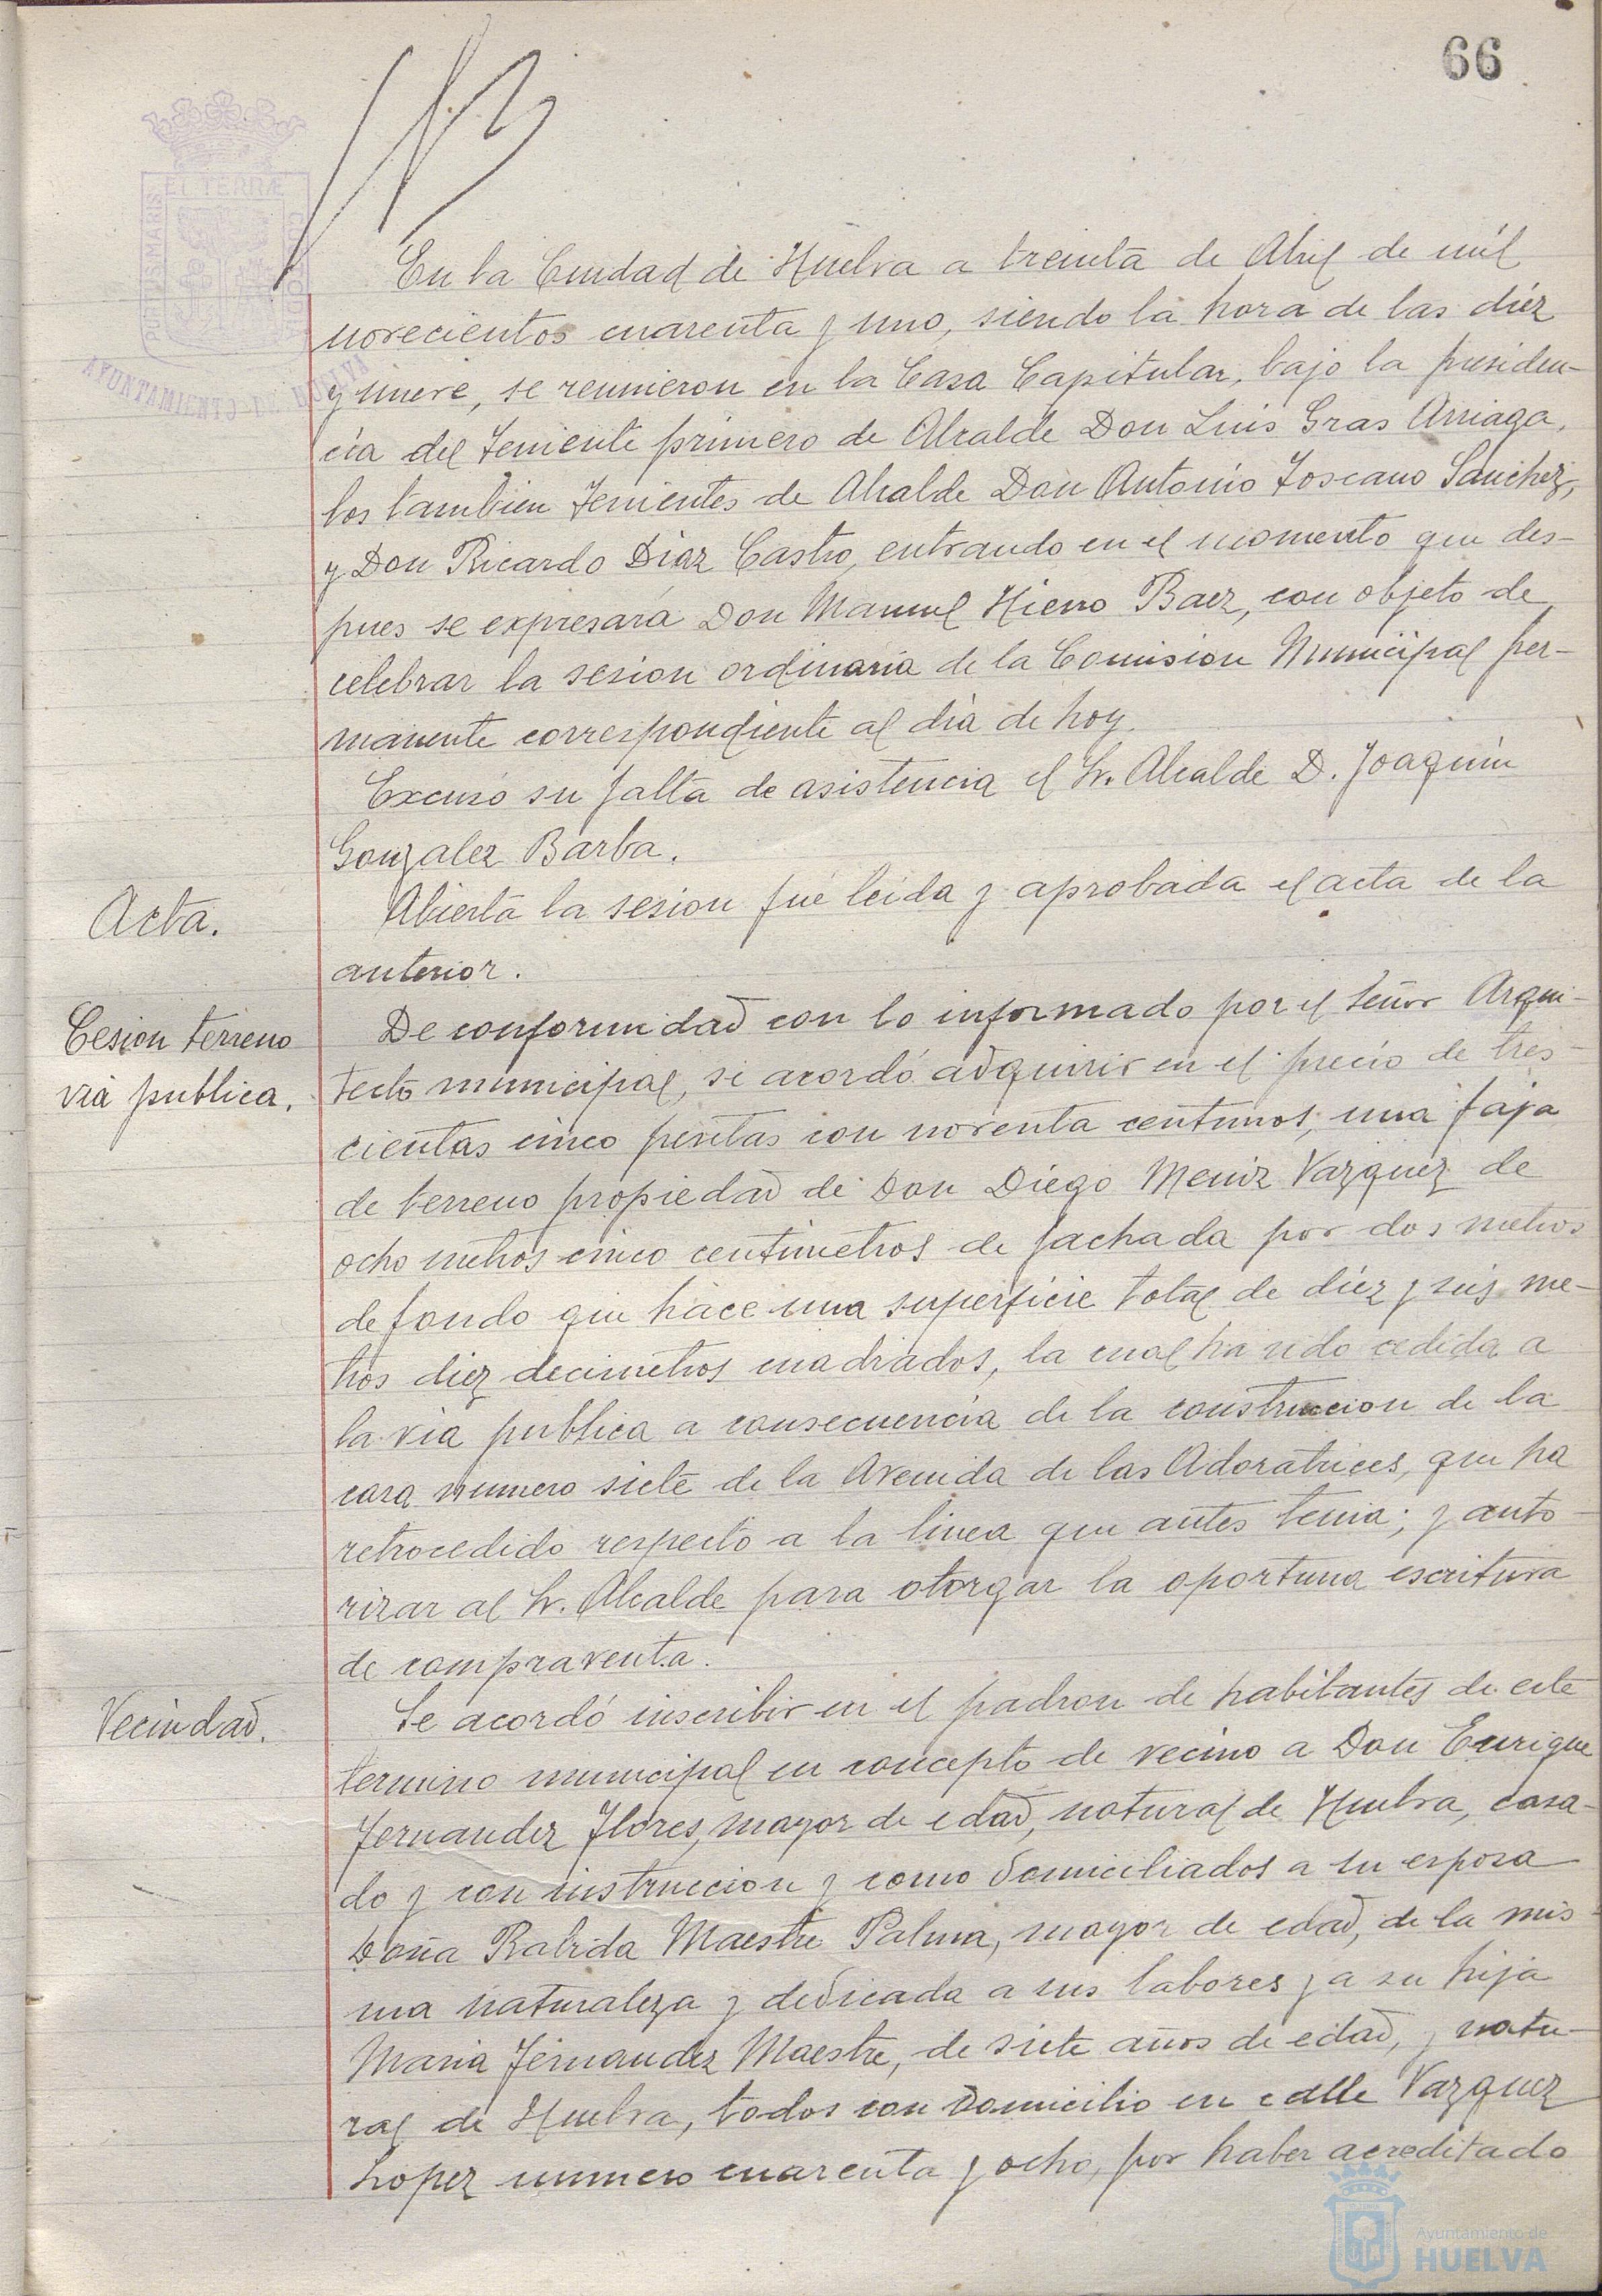 66
PORTUS MARIS
ET TERRÆ
CUSTODIA
AYUNTAMIENTO DE HUELVA
En la Ciudad de Huelva a treinta de Abril de mil
novecientos cuarenta y uno, siendo la hora de las diez
y nueve, se reunieron en la Casa Capitular, bajo la presiden-
cia del Teniente primero de Alcalde Don Luis Gras Arriaga,
los tambien Tenientes de Alcalde Don Antonio Toscano Sanchez,
y Don Ricardo Diaz Castro, entrando en el momento que des-
pues se expresará Don Manuel Hierro Baez, con objeto de
celebrar la sesion ordinaria de la Comision Municipal per-
manente correspondiente al dia de hoy.
Excusó su falta de asistencia el Sr. Alcalde D. Joaquin
Gonzalez Barba.
Acta.
Abierta la sesion fué leida y aprobada el acta de la
anterior.
Cesion terreno
via publica.
De conformidad con lo informado por el Señor Arqui-
tecto municipal, se acordó adquirir en el precio de tres-
cientas cinco pesetas con noventa centimos, una faja
de terreno propiedad de Don Diego Meniz Vazquez de
ocho metros cinco centimetros de fachada por dos metros
de fondo que hace una superficie total de diez y seis me-
tros diez decimetros cuadrados, la cual ha sido cedida a
la via publica a consecuencia de la construccion de la
casa numero siete de la Avenida de las Adoratrices, que ha
retrocedido respecto a la linea que antes tenia; y auto-
rizar al Sr. Alcalde para otorgar la oportuna escritura
de compraventa.
Vecindad.
Se acordó inscribir en el padron de habitantes de este
termino municipal en concepto de vecino a Don Enrique
Fernandez Flores, mayor de edad, natural de Huelva, casa-
do y con instruccion y como domiciliados a su esposa
Doña Rabida Maestre Palma, mayor de edad, de la mis-
ma naturaleza y dedicada a sus labores y a su hija
Maria Fernandez Maestre, de siete años de edad, y natu-
ral de Huelva, todos con domicilio en calle Vazquez
Lopez numero cuarenta y ocho, por haber acreditado
Ayuntamiento de
HUELVA